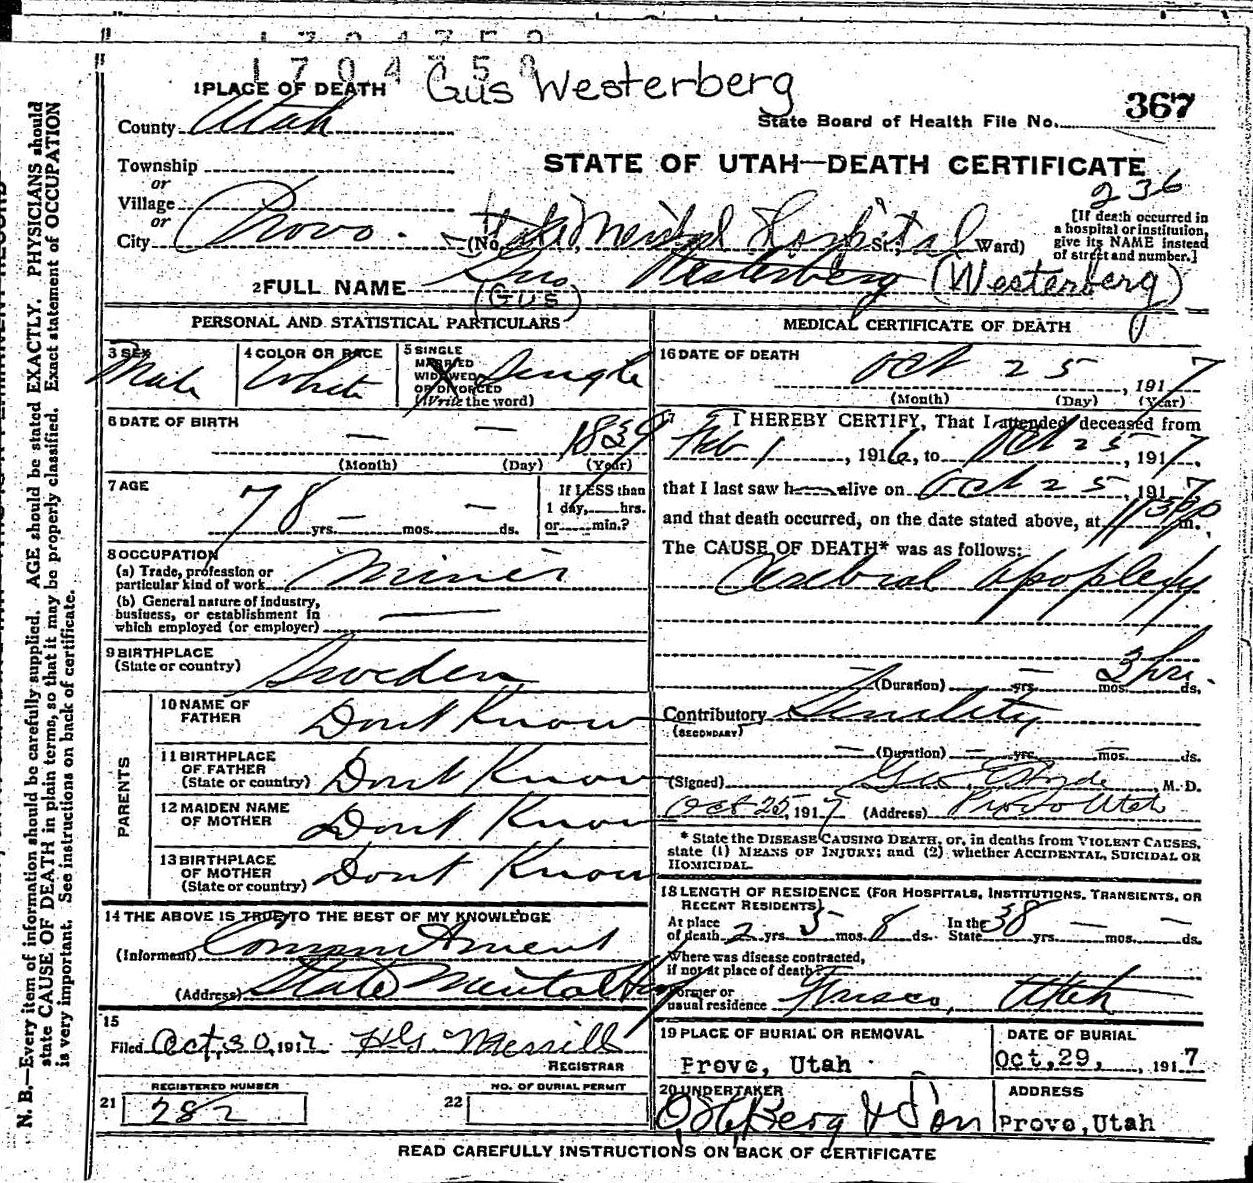 1704758
1 PLACE OF DEATH Gus Westerberg
367
County Utah
State Board of Health File No.
Township
STATE OF UTAH—DEATH CERTIFICATE
or
236
Village
or
City Provo. (No. State Mental Hospital St.; Ward)
[If death occurred in
a hospital or institution,
give its NAME instead
of street and number.]
2 FULL NAME Gus Westerberg (Westerberg)
(GUS)
PERSONAL AND STATISTICAL PARTICULARS
3 SEX Male
4 COLOR OR RACE White
5 SINGLE
MARRIED
WIDOWED
OR DIVORCED
(Write the word) Single
6 DATE OF BIRTH
— — 1839
(Month) (Day) (Year)
7 AGE
78 yrs. — mos. — ds.
If LESS than
1 day, hrs.
or min.?
8 OCCUPATION
(a) Trade, profession or
particular kind of work Miner
(b) General nature of industry,
business, or establishment in
which employed (or employer) —
9 BIRTHPLACE
(State or country) Sweden
PARENTS
10 NAME OF
FATHER Dont Know
11 BIRTHPLACE
OF FATHER
(State or country) Dont Know
12 MAIDEN NAME
OF MOTHER Dont Know
13 BIRTHPLACE
OF MOTHER
(State or country) Dont Know
14 THE ABOVE IS TRUE TO THE BEST OF MY KNOWLEDGE
(Informent) Commitment
(Address) State Mental Hosp
15
Filed Oct, 30, 1917. H.G. Merrill
REGISTRAR
REGISTERED NUMBER
21 282
NO. OF BURIAL PERMIT
22
MEDICAL CERTIFICATE OF DEATH
16 DATE OF DEATH
Oct 25, 1917
(Month) (Day) (Year)
17 I HEREBY CERTIFY, That I attended deceased from
Feb 1, 1916, to Oct 25, 1917.
that I last saw h alive on Oct 25, 1917
and that death occurred, on the date stated above, at 1130P m.
The CAUSE OF DEATH* was as follows:
Cerebral apoplexy
(Duration) yrs. — mos. 3 hrs. ds.
Contributory Senility
(SECONDARY)
— (Duration) — yrs. — mos. ds.
(Signed) Geo E Hyde M. D.
Oct 25, 1917 (Address) Provo Utah
* State the DISEASE CAUSING DEATH, or, in deaths from VIOLENT CAUSES,
state (1) MEANS OF INJURY; and (2) whether ACCIDENTAL, SUICIDAL OR
HOMICIDAL.
18 LENGTH OF RESIDENCE (FOR HOSPITALS, INSTITUTIONS, TRANSIENTS, OR
RECENT RESIDENTS)
At place
of death 2 yrs. 5 mos. 8 ds. In the
State 38 yrs. — mos. — ds.
Where was disease contracted,
if not at place of death?
Former or
usual residence Frisco, Utah
19 PLACE OF BURIAL OR REMOVAL
Provo, Utah
DATE OF BURIAL
Oct, 29, , 1917
20 UNDERTAKER
O, H, Berg & Son
ADDRESS
Provo, Utah
READ CAREFULLY INSTRUCTIONS ON BACK OF CERTIFICATE
N. B.—Every item of information should be carefully supplied. AGE should be stated EXACTLY. PHYSICIANS should
state CAUSE OF DEATH in plain terms, so that it may be properly classified. Exact statement of OCCUPATION
is very important. See instructions on back of certificate.